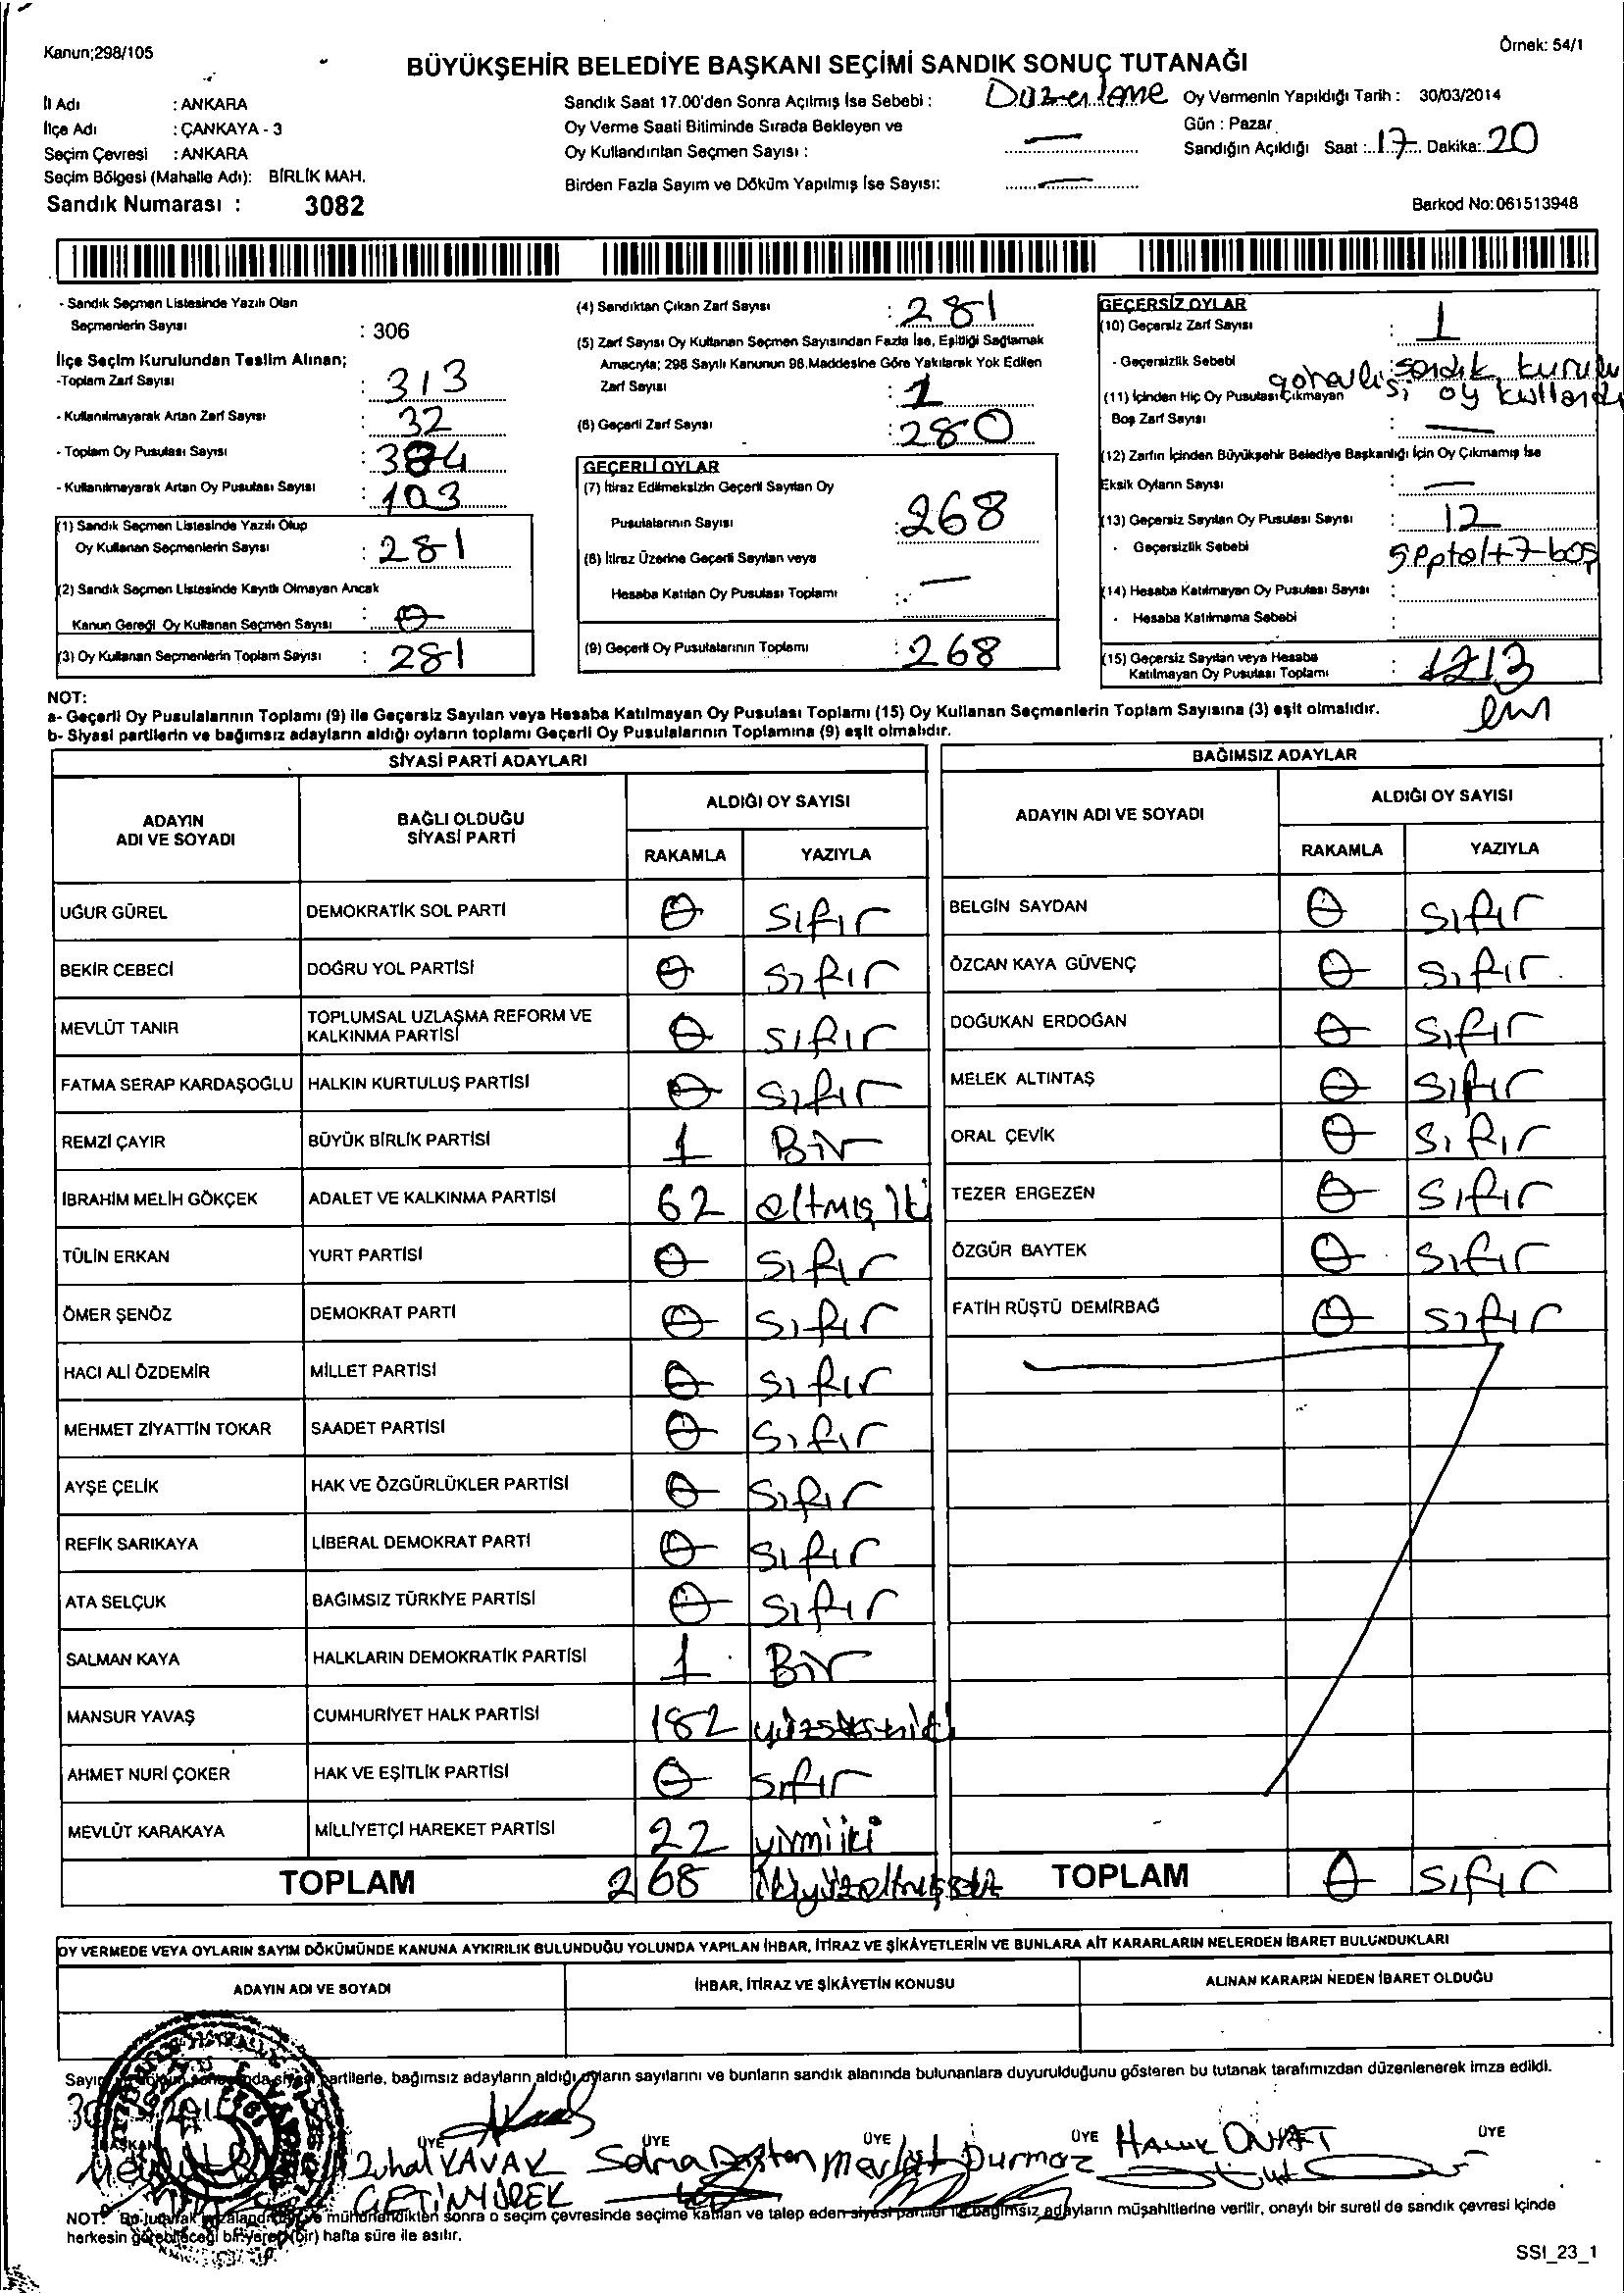 Kanun;298/105
Örnek: 54/1
BÜYÜKŞEHİR BELEDİYE BAŞKANI SEÇİMİ SANDIK SONUÇ TUTANAĞI
İl Adı : ANKARA
İlçe Adı : ÇANKAYA - 3
Seçim Çevresi : ANKARA
Seçim Bölgesi (Mahalle Adı): BİRLİK MAH.
Sandık Numarası : 3082
Sandık Saat 17.00'den Sonra Açılmış İse Sebebi : Düzenleme
Oy Verme Saati Bitiminde Sırada Bekleyen ve
Oy Kullandırılan Seçmen Sayısı : —
Birden Fazla Sayım ve Döküm Yapılmış İse Sayısı: —
Oy Vermenin Yapıldığı Tarih : 30/03/2014
Gün : Pazar
Sandığın Açıldığı Saat : 17 Dakika: 20
Barkod No:061513948
- Sandık Seçmen Listesinde Yazılı Olan
Seçmenlerin Sayısı : 306
İlçe Seçim Kurulundan Teslim Alınan;
-Toplam Zarf Sayısı : 313
- Kullanılmayarak Artan Zarf Sayısı : 32
- Toplam Oy Pusulası Sayısı : 384
- Kullanılmayarak Artan Oy Pusulası Sayısı : 103
(1) Sandık Seçmen Listesinde Yazılı Olup
Oy Kullanan Seçmenlerin Sayısı : 281
(2) Sandık Seçmen Listesinde Kayıtlı Olmayan Ancak
Kanun Gereği Oy Kullanan Seçmen Sayısı : 0
(3) Oy Kullanan Seçmenlerin Toplam Sayısı : 281
(4) Sandıktan Çıkan Zarf Sayısı : 281
(5) Zarf Sayısı Oy Kullanan Seçmen Sayısından Fazla İse, Eşitliği Sağlamak
Amacıyla; 298 Sayılı Kanunun 98.Maddesine Göre Yakılarak Yok Edilen
Zarf Sayısı : 1
(6) Geçerli Zarf Sayısı : 280
GEÇERLİ OYLAR
(7) İtiraz Edilmeksizin Geçerli Sayılan Oy
Pusulalarının Sayısı : 268
(8) İtiraz Üzerine Geçerli Sayılan veya
Hesaba Katılan Oy Pusulası Toplamı : —
(9) Geçerli Oy Pusulalarının Toplamı : 268
GEÇERSİZ OYLAR
(10) Geçersiz Zarf Sayısı : 1
- Geçersizlik Sebebi : sandık kurulu
görevlisi oy kullandı
(11) İçinden Hiç Oy Pusulası Çıkmayan
Boş Zarf Sayısı : —
(12) Zarfın İçinden Büyükşehir Belediye Başkanlığı İçin Oy Çıkmamış İse
Eksik Oyların Sayısı : —
(13) Geçersiz Sayılan Oy Pusulası Sayısı : 12
- Geçersizlik Sebebi 5 iptal+7-boş
(14) Hesaba Katılmayan Oy Pusulası Sayısı :
- Hesaba Katılmama Sebebi :
(15) Geçersiz Sayılan veya Hesaba
Katılmayan Oy Pusulası Toplamı : 13
NOT:
a- Geçerli Oy Pusulalarının Toplamı (9) ile Geçersiz Sayılan veya Hesaba Katılmayan Oy Pusulası Toplamı (15) Oy Kullanan Seçmenlerin Toplam Sayısına (3) eşit olmalıdır.
b- Siyasi partilerin ve bağımsız adayların aldığı oyların toplamı Geçerli Oy Pusulalarının Toplamına (9) eşit olmalıdır.
SİYASİ PARTİ ADAYLARI
ADAYIN ADI VE SOYADI BAĞLI OLDUĞU SİYASİ PARTİ ALDIĞI OY SAYISI
RAKAMLA YAZIYLA
UĞUR GÜREL DEMOKRATİK SOL PARTİ 0 sıfır
BEKİR CEBECİ DOĞRU YOL PARTİSİ 0 sıfır
MEVLÜT TANIR TOPLUMSAL UZLAŞMA REFORM VE KALKINMA PARTİSİ 0 sıfır
FATMA SERAP KARDAŞOĞLU HALKIN KURTULUŞ PARTİSİ 0 sıfır
REMZİ ÇAYIR BÜYÜK BİRLİK PARTİSİ 1 Bir
İBRAHİM MELİH GÖKÇEK ADALET VE KALKINMA PARTİSİ 62 altmış iki
TÜLİN ERKAN YURT PARTİSİ 0 sıfır
ÖMER ŞENÖZ DEMOKRAT PARTİ 0 sıfır
HACI ALİ ÖZDEMİR MİLLET PARTİSİ 0 sıfır
MEHMET ZİYATTİN TOKAR SAADET PARTİSİ 0 sıfır
AYŞE ÇELİK HAK VE ÖZGÜRLÜKLER PARTİSİ 0 sıfır
REFİK SARIKAYA LİBERAL DEMOKRAT PARTİ 0 sıfır
ATA SELÇUK BAĞIMSIZ TÜRKİYE PARTİSİ 0 sıfır
SALMAN KAYA HALKLARIN DEMOKRATİK PARTİSİ 1 Bir
MANSUR YAVAŞ CUMHURİYET HALK PARTİSİ 182 yüzsekseniki
AHMET NURİ ÇOKER HAK VE EŞİTLİK PARTİSİ 0 sıfır
MEVLÜT KARAKAYA MİLLİYETÇİ HAREKET PARTİSİ 22 yirmiiki
TOPLAM 268 ikiyüzaltmışsekiz
BAĞIMSIZ ADAYLAR
ADAYIN ADI VE SOYADI ALDIĞI OY SAYISI
RAKAMLA YAZIYLA
BELGİN SAYDAN 0 sıfır
ÖZCAN KAYA GÜVENÇ 0 sıfır
DOĞUKAN ERDOĞAN 0 sıfır
MELEK ALTINTAŞ 0 sıfır
ORAL ÇEVİK 0 sıfır
TEZER ERGEZEN 0 sıfır
ÖZGÜR BAYTEK 0 sıfır
FATİH RÜŞTÜ DEMİRBAĞ 0 sıfır
TOPLAM 0 sıfır
OY VERMEDE VEYA OYLARIN SAYIM DÖKÜMÜNDE KANUNA AYKIRILIK BULUNDUĞU YOLUNDA YAPILAN İHBAR, İTİRAZ VE ŞİKÂYETLERİN VE BUNLARA AİT KARARLARIN NELERDEN İBARET BULUNDUKLARI
ADAYIN ADI VE SOYADI İHBAR, İTİRAZ VE ŞİKÂYETİN KONUSU ALINAN KARARIN NEDEN İBARET OLDUĞU
partilerle, bağımsız adayların aldığı oyların sayılarını ve bunların sandık alanında bulunanlara duyurulduğunu gösteren bu tutanak tarafımızdan düzenlenerek imza edildi.
BAŞKAN ÜYE ÜYE ÜYE ÜYE ÜYE
Zuhal KAVAK Mevlüt Durmaz Haluk
ÇETİNYÜREK
NOT: Bu tutanak mühürlendikten sonra o seçim çevresinde seçime katılan ve talep eden siyasi partiler ile bağımsız adayların müşahitlerine verilir, onaylı bir sureti de sandık çevresi içinde
herkesin görebileceği bir yere (bir) hafta süre ile asılır.
SSI_23_1